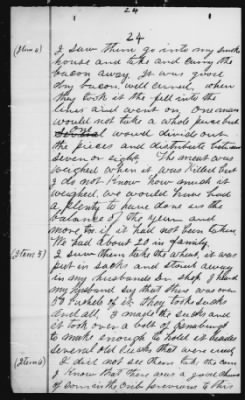 24
24
(Item 4) I saw them go into my smoke
house and take and carry the
bacon away. It was good
dry bacon well cured, when
they took it they fell into the
lines and went on. One man
would not take a whole piece but
would divide out
the pieces and distribute between
seven or eight. The meat was
weighed when it was killed but
I do not know how much it
weighed. We would have had
a plenty to have done us the
balance of the year and
more too if it had not been taken.
We had about 20 in family.
(Item 5) I saw them take the wheat, it was
put in sacks and stowed away
in my husbands shop. I heard
my husband say that there was over
50 bushels of it. They took sacks
and all. I made the sacks and
it took over a bolt of
to make enough to hold it besides
several old sacks that were used
(Item 6) I did not see them take the corn
I know that there was a good
of corn in the crib previous to this